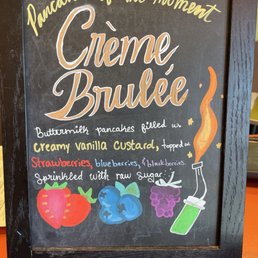 Pancake of the moment
Crème
Brulée
Buttermilk pancakes filled w.
creamy vanilla custard, topped w
Strawberries, blueberries, & blackberries.
Sprinkled with raw sugar.